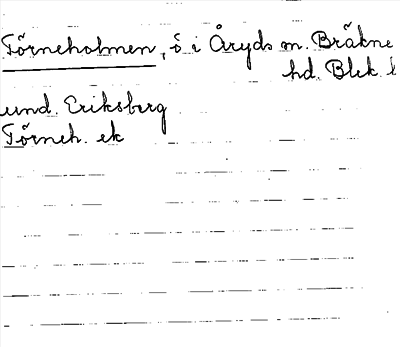 Törneholmen, ö i Åryds sn. Bräkne
hd. Blek. l
und. Eriksberg
Törneh. ek